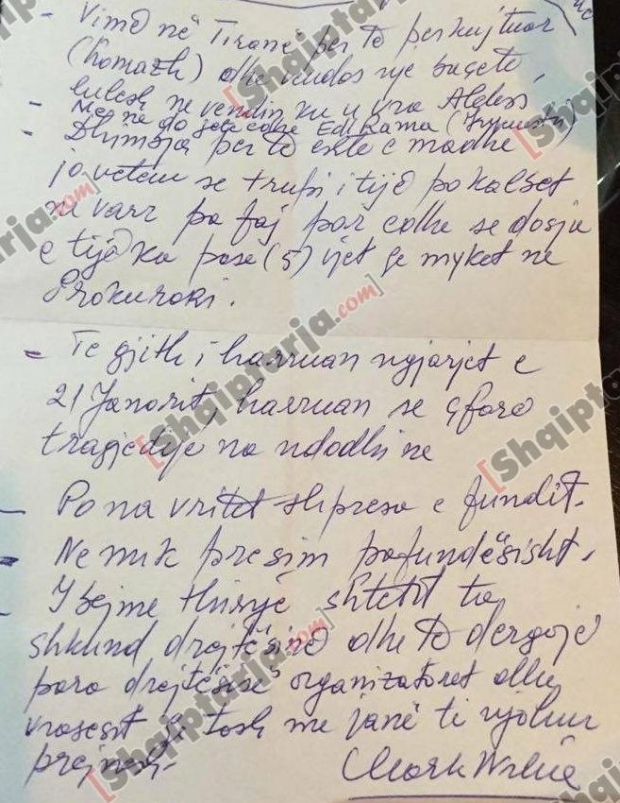 - Vimë në Tiranë per të perkujtuar
(homazh) dhe vendos një buqetë
lulesh ne vendin ku u vra Aleks
- Me ne do jetë edhe Edi Rama
- Dhimbja per të eshte e madhe
jo vetem se trupi i tijë po kalbet
ne varr pa faj por edhe se dosja
e tijë ka pase (5) vjet qe myket ne
Prokurori.
- Te gjith i harruan ngjarjet e
21 Janarit, harruan se çfarë
tragjedije na ndodhi ne
- Po na vritet shpresa e fundit.
- Ne nuk presim pafundësisht.
- I bejme thirrje shtetit ta
shkund drejtësinë dhe të dergojë
para drejtësisë organizatoret dhe
vrasesit qe tash me janë te njohur
prej
[Shqiptarja.com]